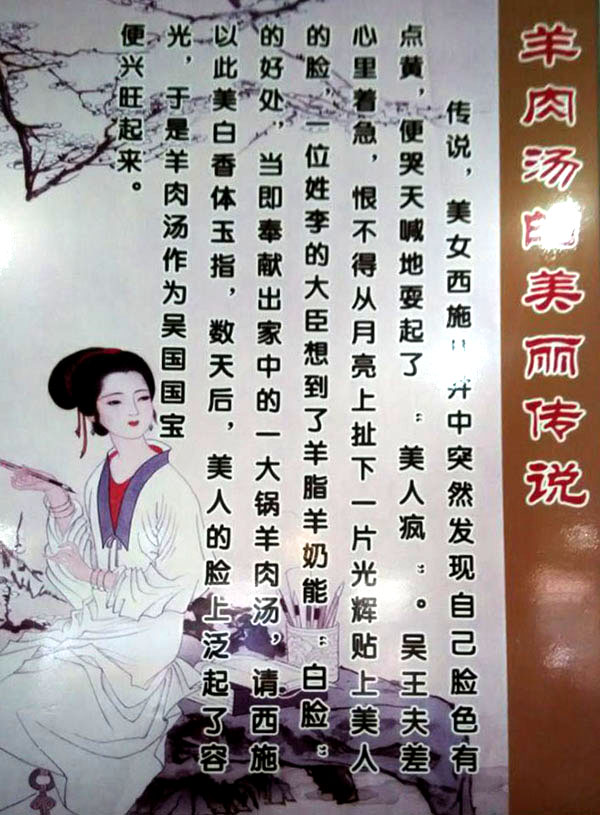 羊肉汤的美丽传说
传说，美女西施井中突然发现自己脸色有
点黄，便哭天喊地耍起了“美人疯”。吴王夫差
心里着急，恨不得从月亮上扯下一片光辉贴上美人
的脸，一位姓李的大臣想到了羊脂羊奶能“白脸”
的好处，当即奉献出家中的一大锅羊肉汤，请西施
以此美白香体玉指，数天后，美人的脸上泛起了容
光，于是羊肉汤作为吴国国宝
便兴旺起来。